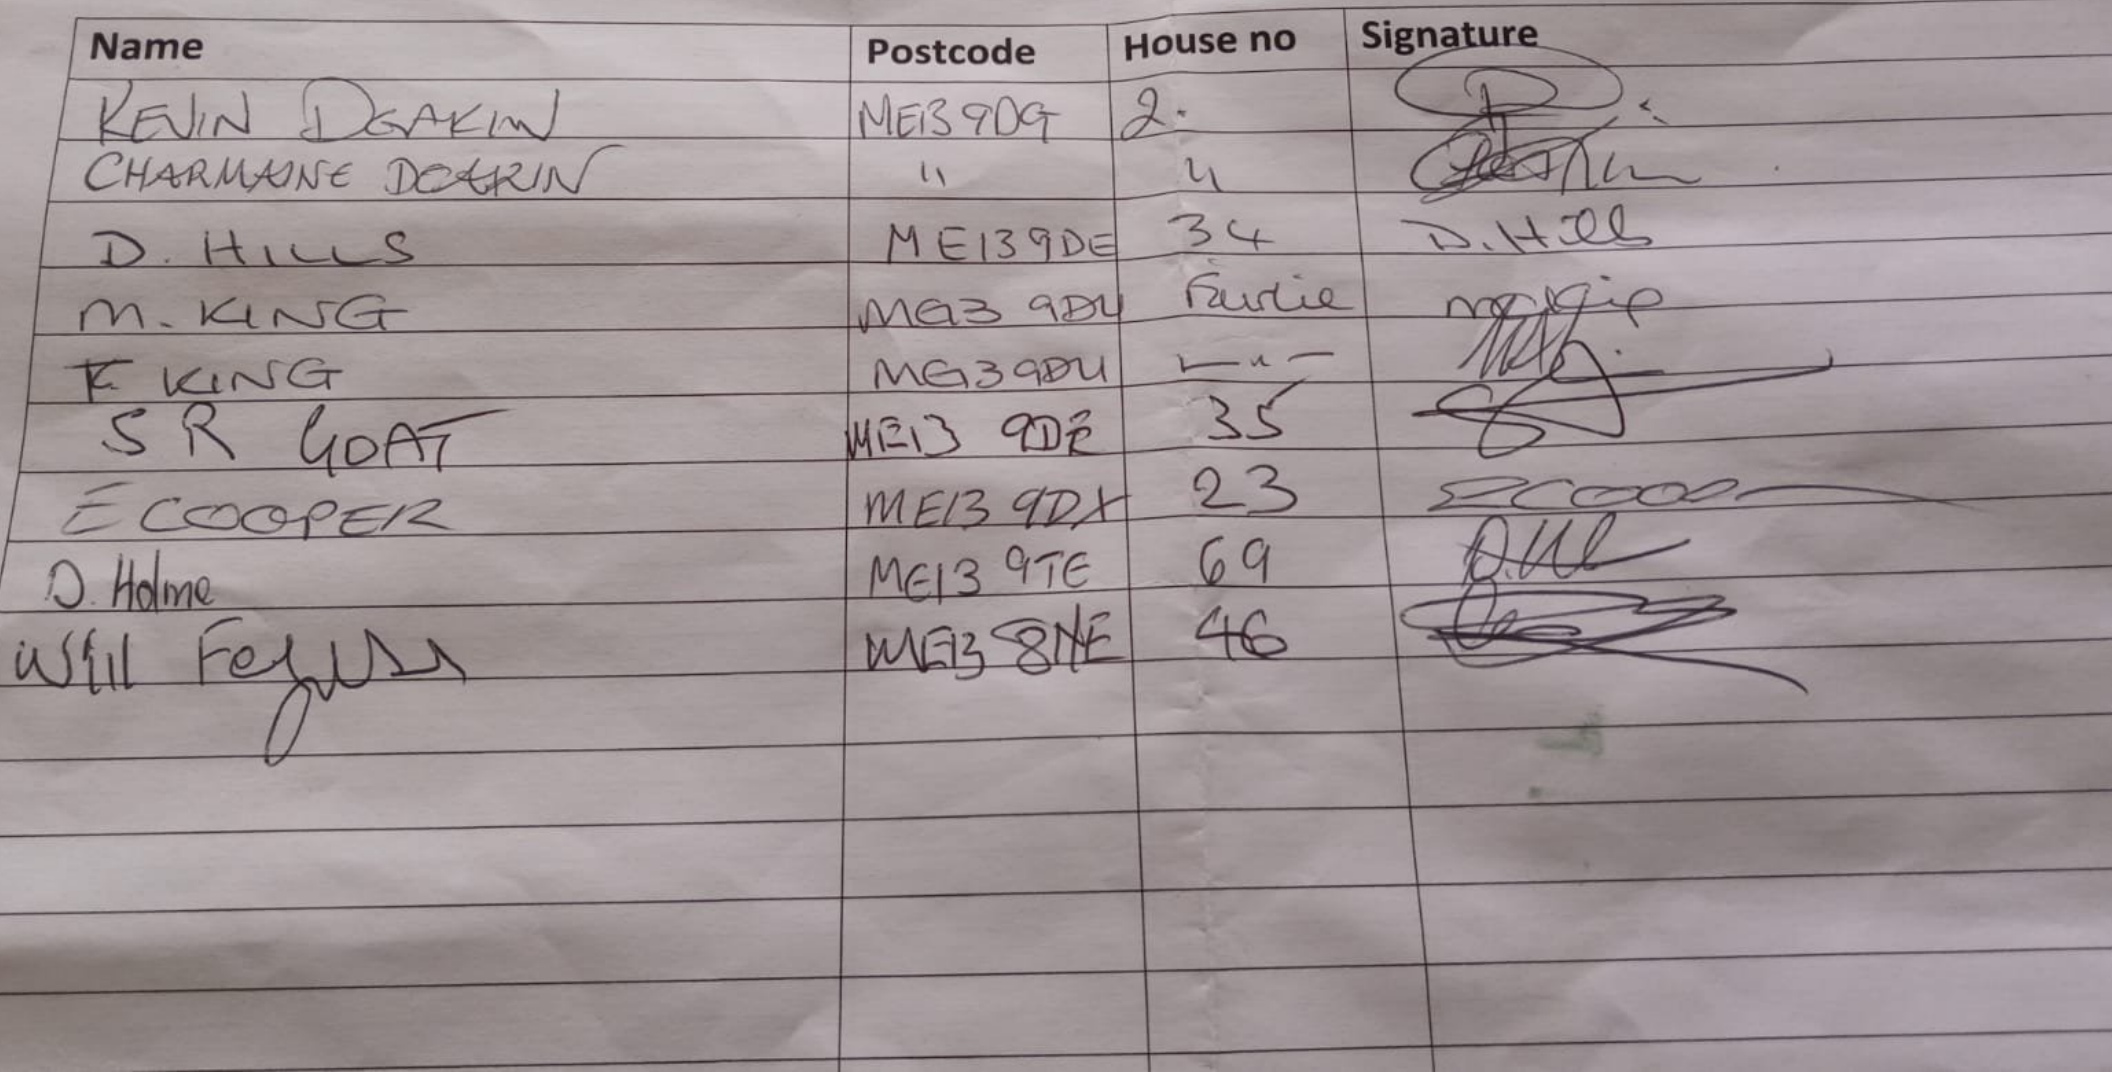 Name Postcode House no Signature
KEVIN DEAKIN ME13 9DG 2.
CHARMAINE DEAKIN " "
D. HILLS ME13 9DE 34 D. Hills
M. KING ME13 9DU Fairlie
F KING ME13 9DU — " —
S R GOAT ME13 9DE 35
E COOPER ME13 9DX 23
D. Holme ME13 9TE 69
Will ME13 8NE 46